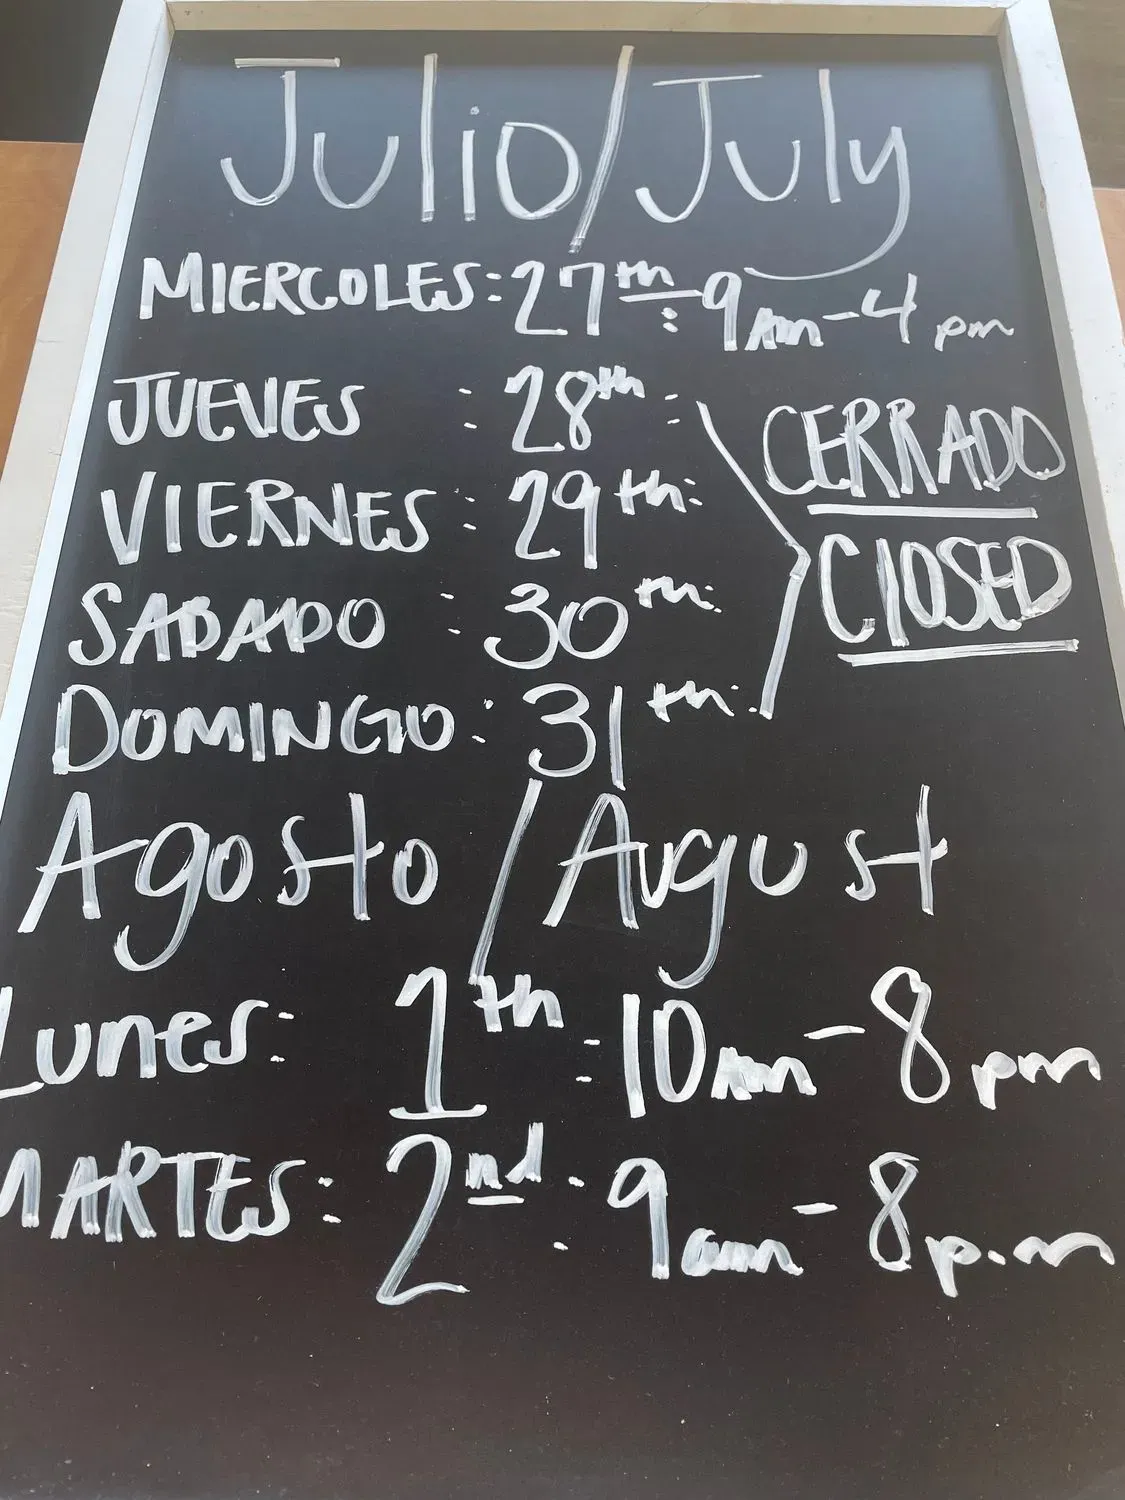 Julio/July
MIERCOLES: 27th: 9Am-4pm
JUEVES : 28th :
VIERNES : 29th:
SABADO : 30th:
DOMINGO : 31th:
CERRADO
CLOSED
Agosto / August
Lunes: 1th : 10Am-8pm
MARTES: 2nd : 9am-8p.m